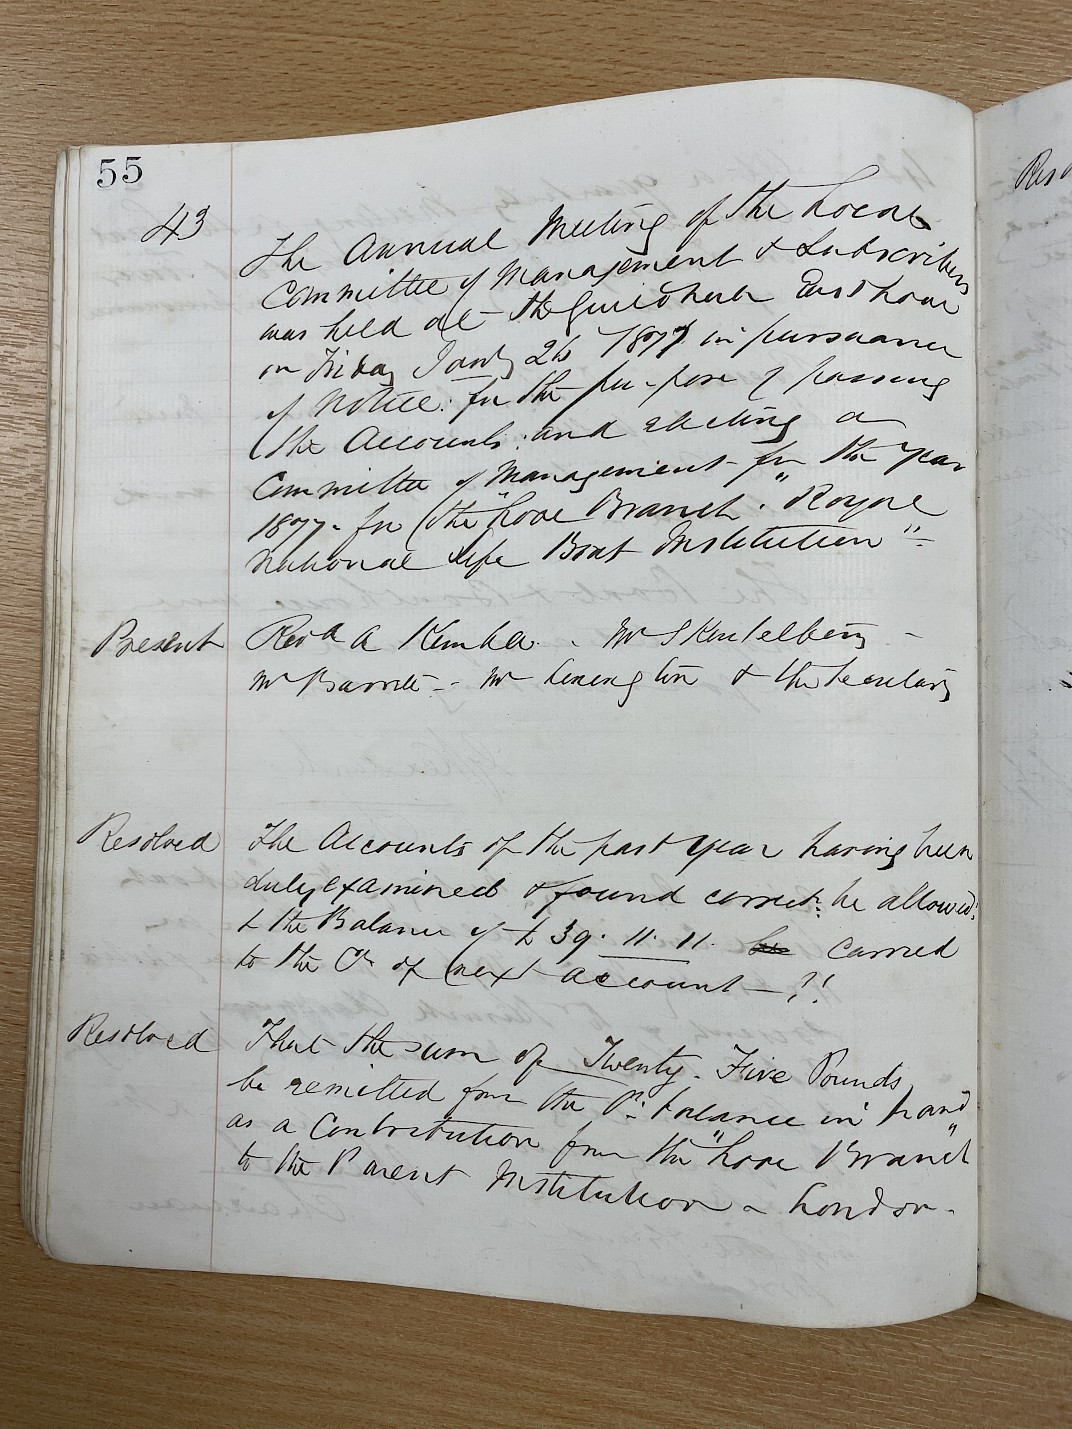 55
43
The Annual Meeting of the Local
Committee of Management & Subscribers
was held at the Guildhall East Looe
on Friday Jany 26 1877 in pursuance
of Notice: for the purpose of passing
the Accounts: and electing a
Committee of Management for the year
1877 - for the "Looe Branch" "Royal
National Life Boat Institution"
Present Revd A Kemble - Mr S
Mr Barrett - Mr Lexington & the Secretary
Resolved The Accounts of the past year having been
duly examined & found correct: be allowed:
& the Balance of £ 39. 11. 11. carried
to the Cr of next account - !!
Resolved That the sum of Twenty - Five Pounds
be remitted from the Pt: balance in hand
as a Contribution from the "Looe Branch"
to the Parent Institution - London -
Res